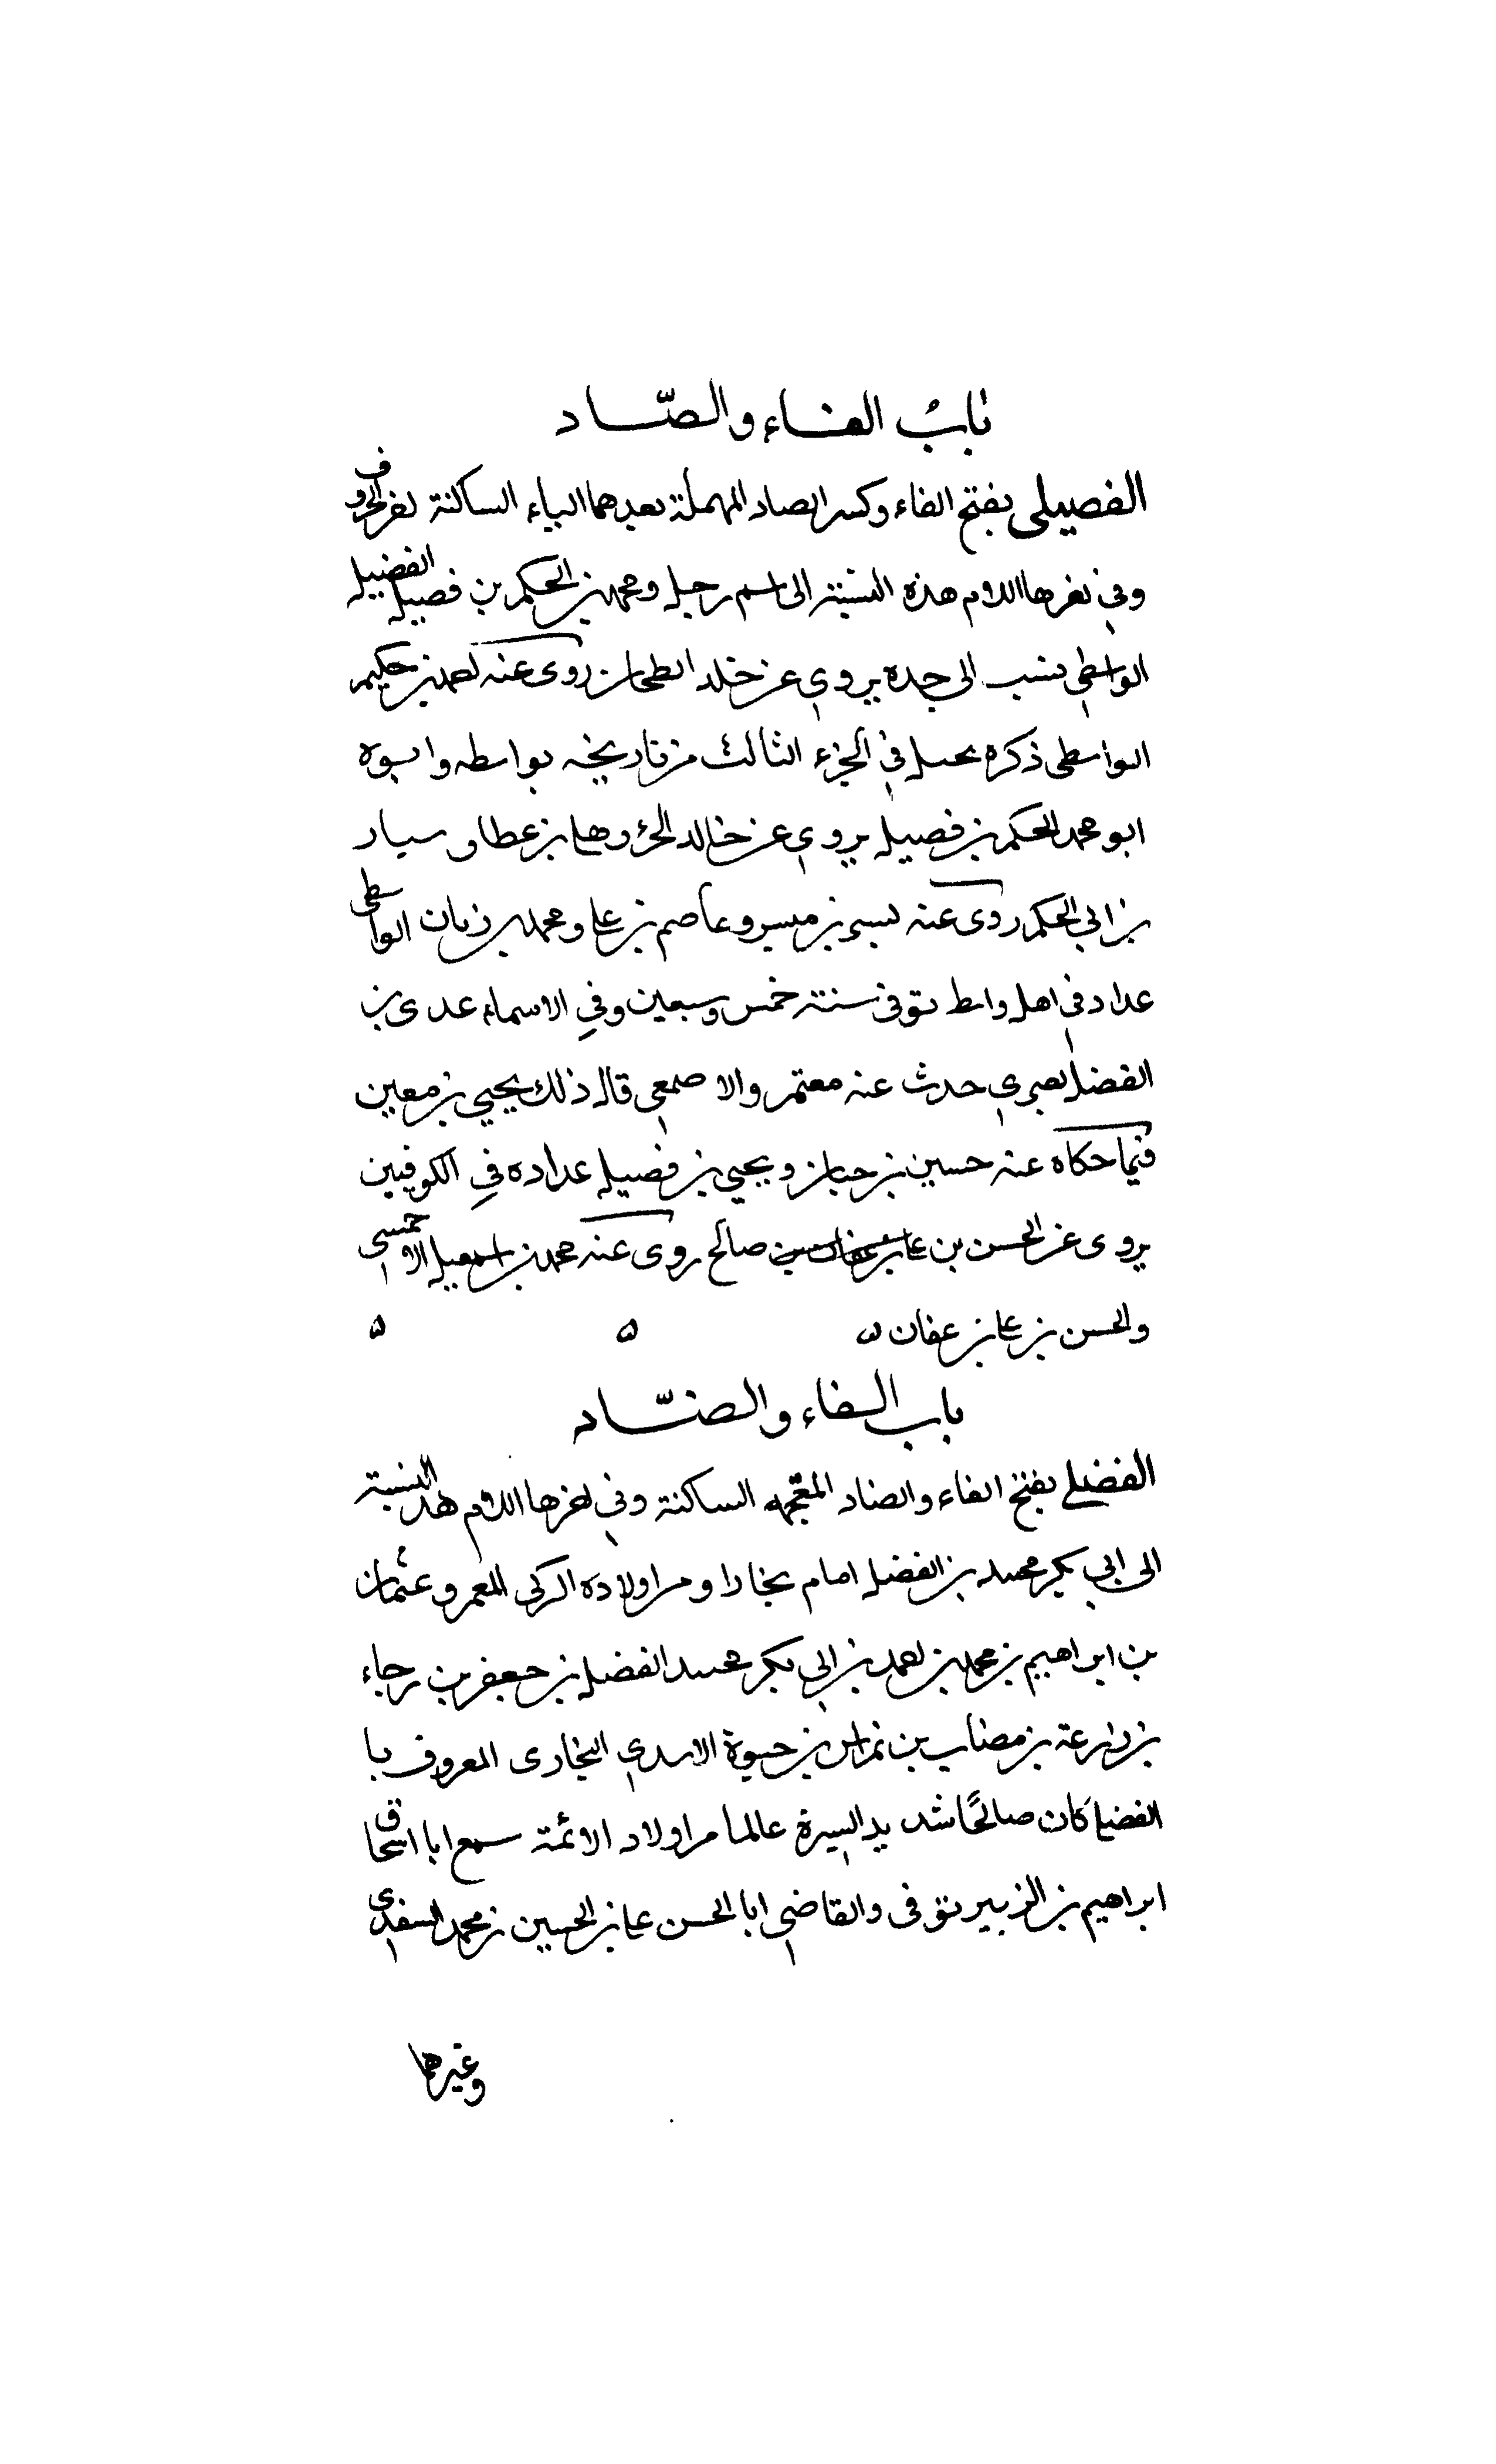 باب الفاء والصّاد
الفصيلى بفتح الفاء وكسر الصاد المهملة بعدهما الياء الساكنة اخر الحروف
وفي اخرها اللام هذه النسبة الى اسم رجل ومحمد بن الحكم بن فصيل الفضيل
الواسطي نسب الى جده يروي عن خلد الطحان روى عنه احمد بن حكيم
الواسطى ذكره بحسل في الجزء الثالث من تاريخه بواسطه وابوه
ابو محمد الحكم بن فصيل يروي عن خالد الحذو بن عطا و سيار
بن ابي الحكم روى عنه بن وعاصم بن على ومحمد بن ابان الواسطى
عداد في اهل واسط توفى سنة خمس وسبعين وفي الاسماء عدى بن
الفضل بصري حدث عنه معتمر والاصمعي قال ذلك يحيي بن معين
فيما حكاه عنه حسين بن حبان ويحيي بن فصيل عداده في الكوفيين
يروى عن الحسن بن صالح روى عنه محمد بن اسمعيل الاحمسي
والحسن بن على بن عفان ه ه ه
باب الفاء والضّاد
الفضلي بفتح الفاء والضاد المعجمه الساكنة وفي اخرها اللام هذه النسبة
الى ابي بكر محمد بن الفضل امام بخارا ومن اولاده الزكى المعمر و عثمان
بن ابراهيم بن محمد بن احمد بن ابي بكر محمد الفضل بن جعفر بن رجاء
بن زرعة بن بن بن حيوة الاسدي البخارى المعروف با
الفضلي كان صالحًا شديد السيرة عالما من اولاد الائمة سمع ابا اسحاق
ابراهيم بن الزبير توفى والقاضي ابا الحسن على بن الحسين بن محمد السغدي
وغيرهما